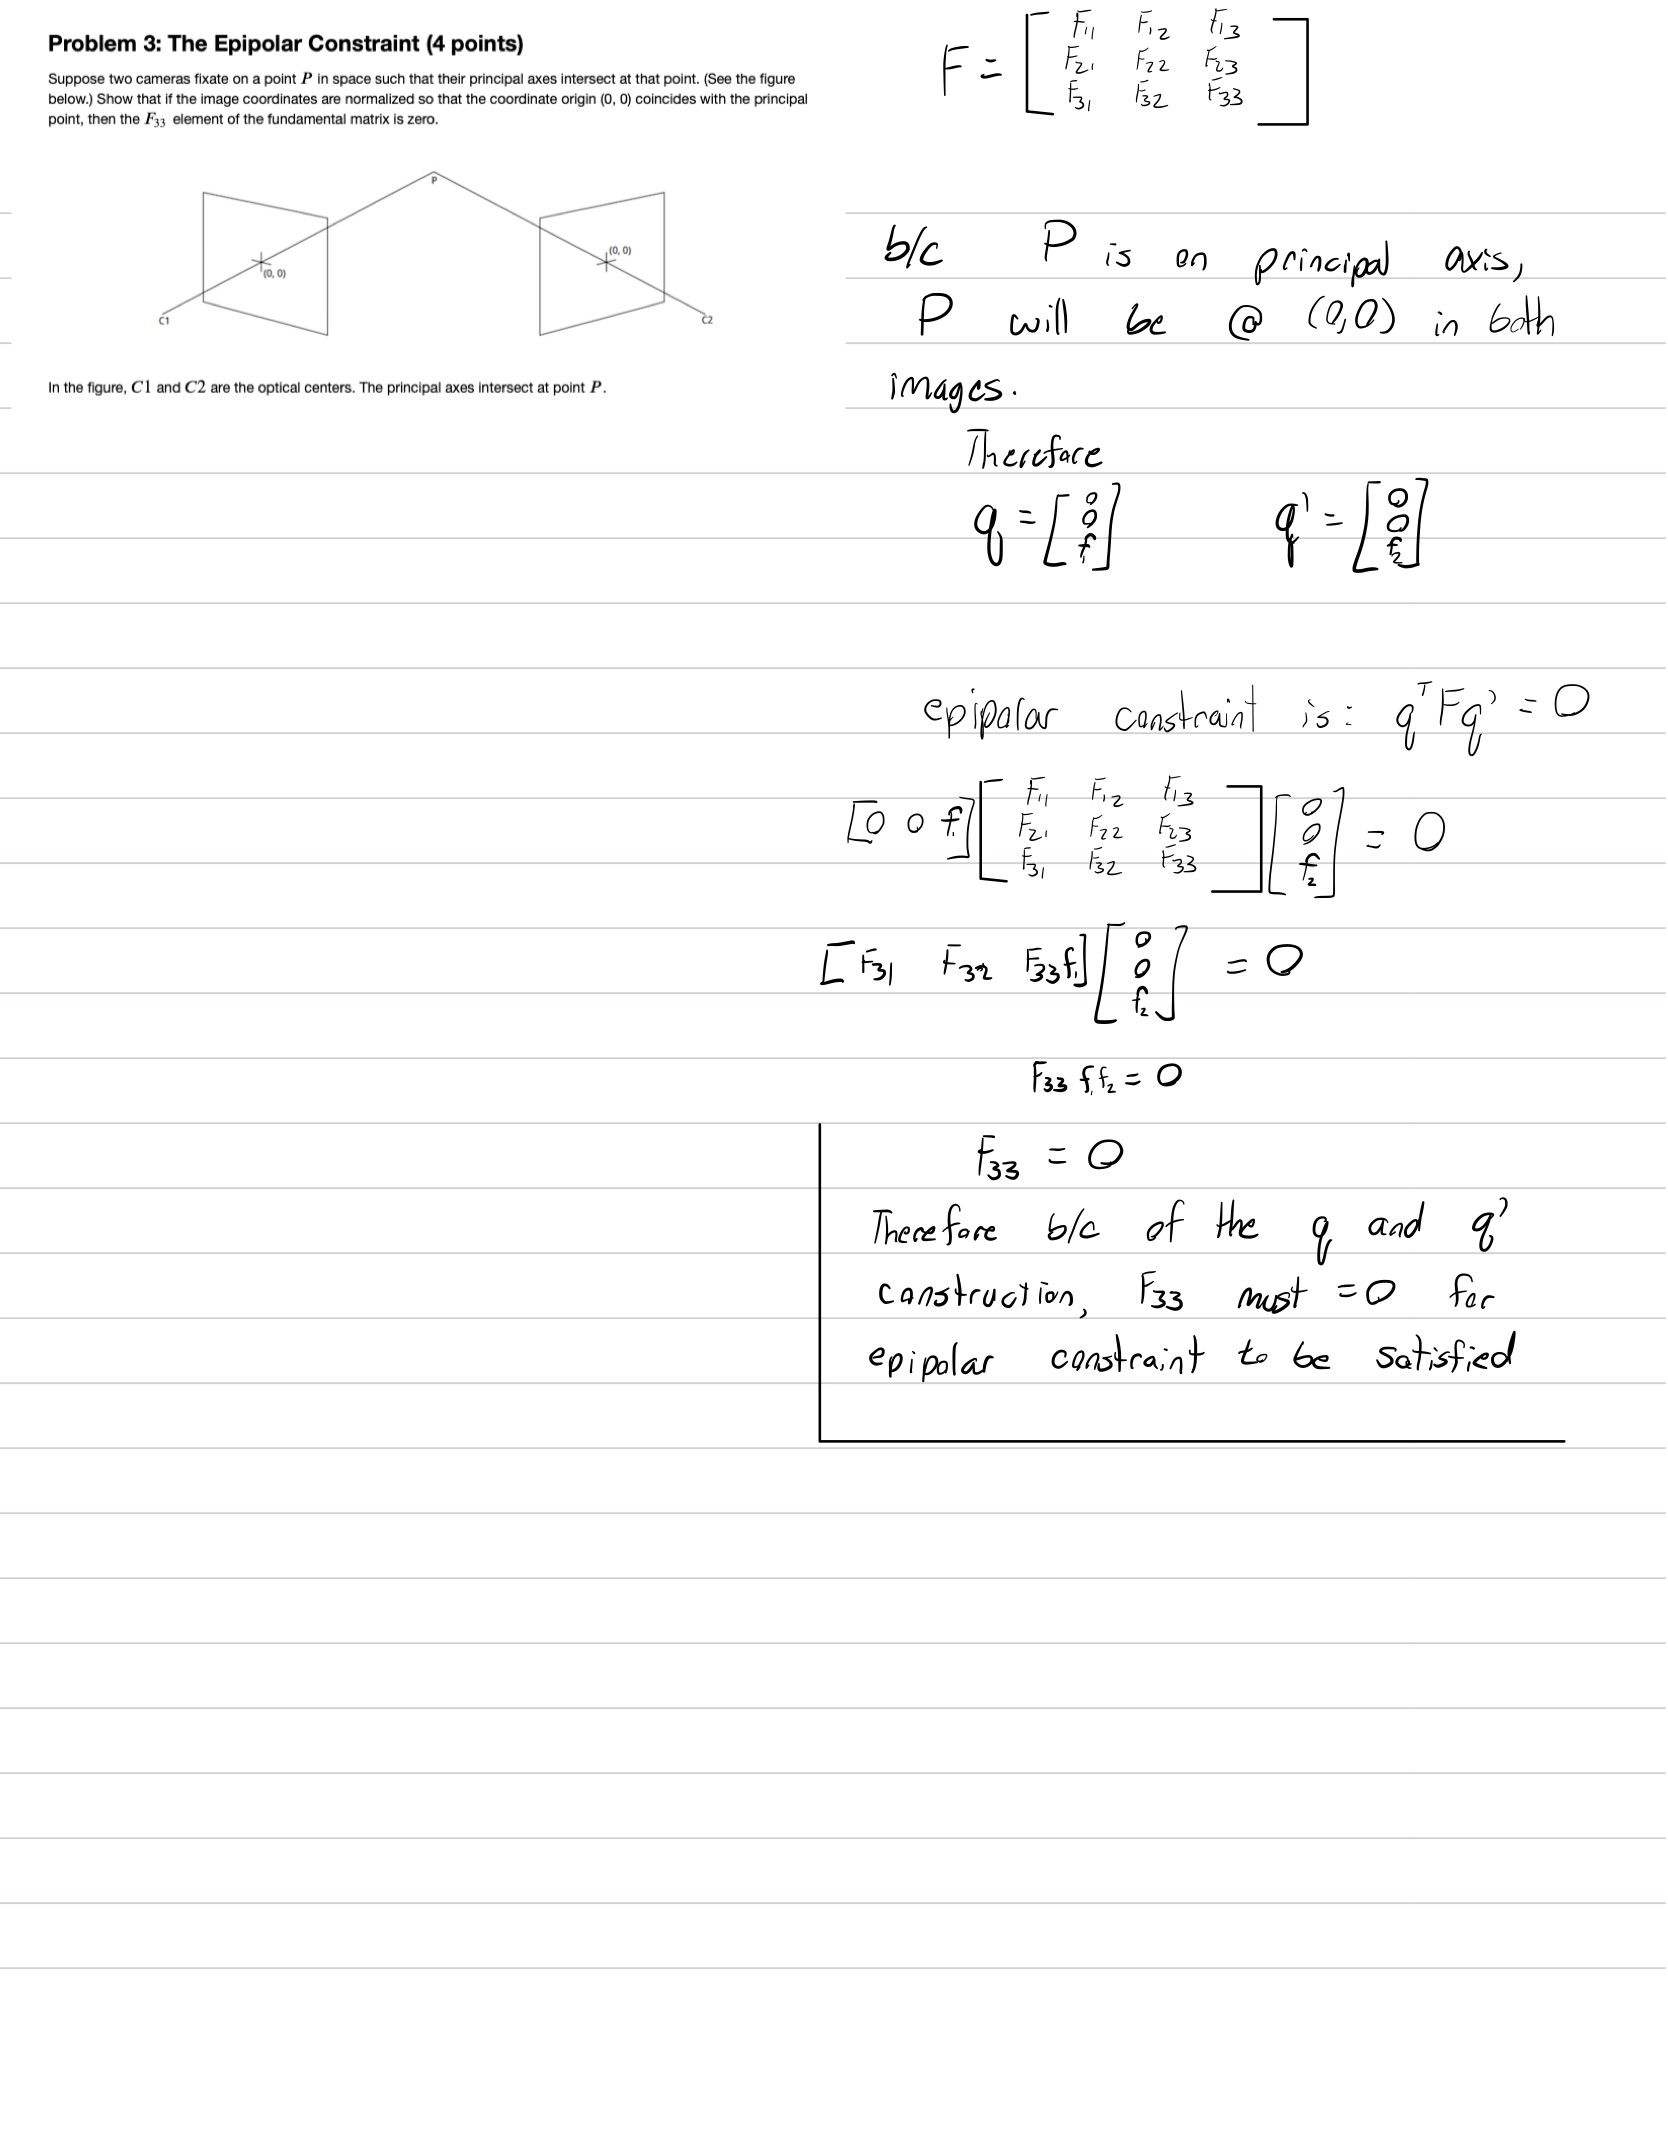 Problem 3: The Epipolar Constraint (4 points)
Suppose two cameras fixate on a point P in space such that their principal axes intersect at that point. (See the figure
below.) Show that if the image coordinates are normalized so that the coordinate origin (0, 0) coincides with the principal
point, then the F33 element of the fundamental matrix is zero.
P
(0, 0)
(0, 0)
C1
C2
In the figure, C1 and C2 are the optical centers. The principal axes intersect at point P.
F = [ F11 F12 F13
F21 F22 F23
F31 F32 F33 ]
b/c P is on principal axis,
P will be @ (0,0) in both
images.
Therefore
q = [ 0 0 f1 ] q' = [ 0 0 f2 ]
epipolar constraint is: q^T F q' = 0
[0 0 f1] [ F11 F12 F13
F21 F22 F23
F31 F32 F33 ] [ 0 0 f2 ] = 0
[ F31 F32 F33 f1 ] [ 0 0 f2 ] = 0
F33 f1 f2 = 0
F33 = 0
Therefore b/c of the q and q'
construction, F33 must = 0 for
epipolar constraint to be satisfied